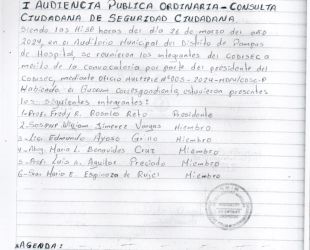 I AUDIENCIA PUBLICA ORDINARIA - CONSULTA
CIUDADANA DE SEGURIDAD CIUDADANA.
Siendo las horas del día 26 de marzo del año
2024, en el Auditorio Municipal del Distrito de Pampas
de Hospital, se reunieron los integrantes del CODISEC a
mérito de la convocatoria por parte del presidente del
CODISEC, mediante Oficio Multiple N°003-2024-MDPH/CODISEC-P
Habiendo el Quorum correspondiente, estuvieron presentes
los siguientes integrantes:
1-Prof. Fredy R. Rosales Reto Presidente
2-Sospnp William Jimenez Vargas Miembro
3-Lic Edmundo Ayoso Miembro
4-Abog. Maria L. Benavides Cruz Miembro
5-Prof. Luis A. Aguilar Preciado Miembro
6-Sra. Maria E. Espinoza de Rujel Miembro
AGENDA: